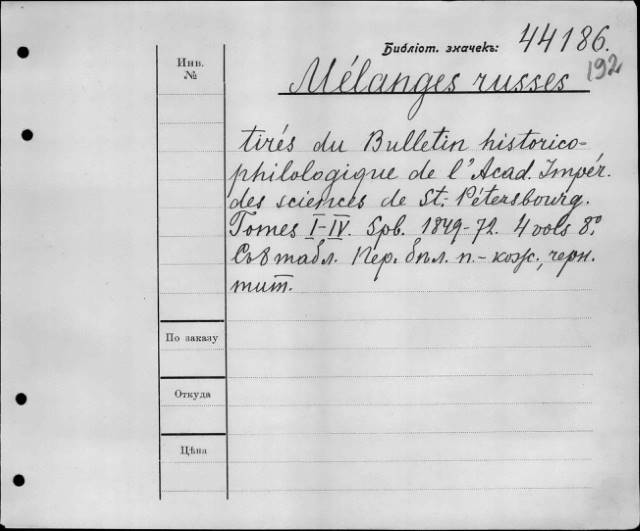 Библіот. значекъ: 44186.
192
Инв.
№
Mélanges russes
tirés du Bulletin historico-
philologique de l'Acad. Impér.
des sciences de St.-Pétersbourg.
Tomes I-IV. Spb. 1849-72. 4 vols 8.º
Съ табл. Пер. бѣл. п.-кож., черн.
тит.
По заказу
Откуда
Цѣна